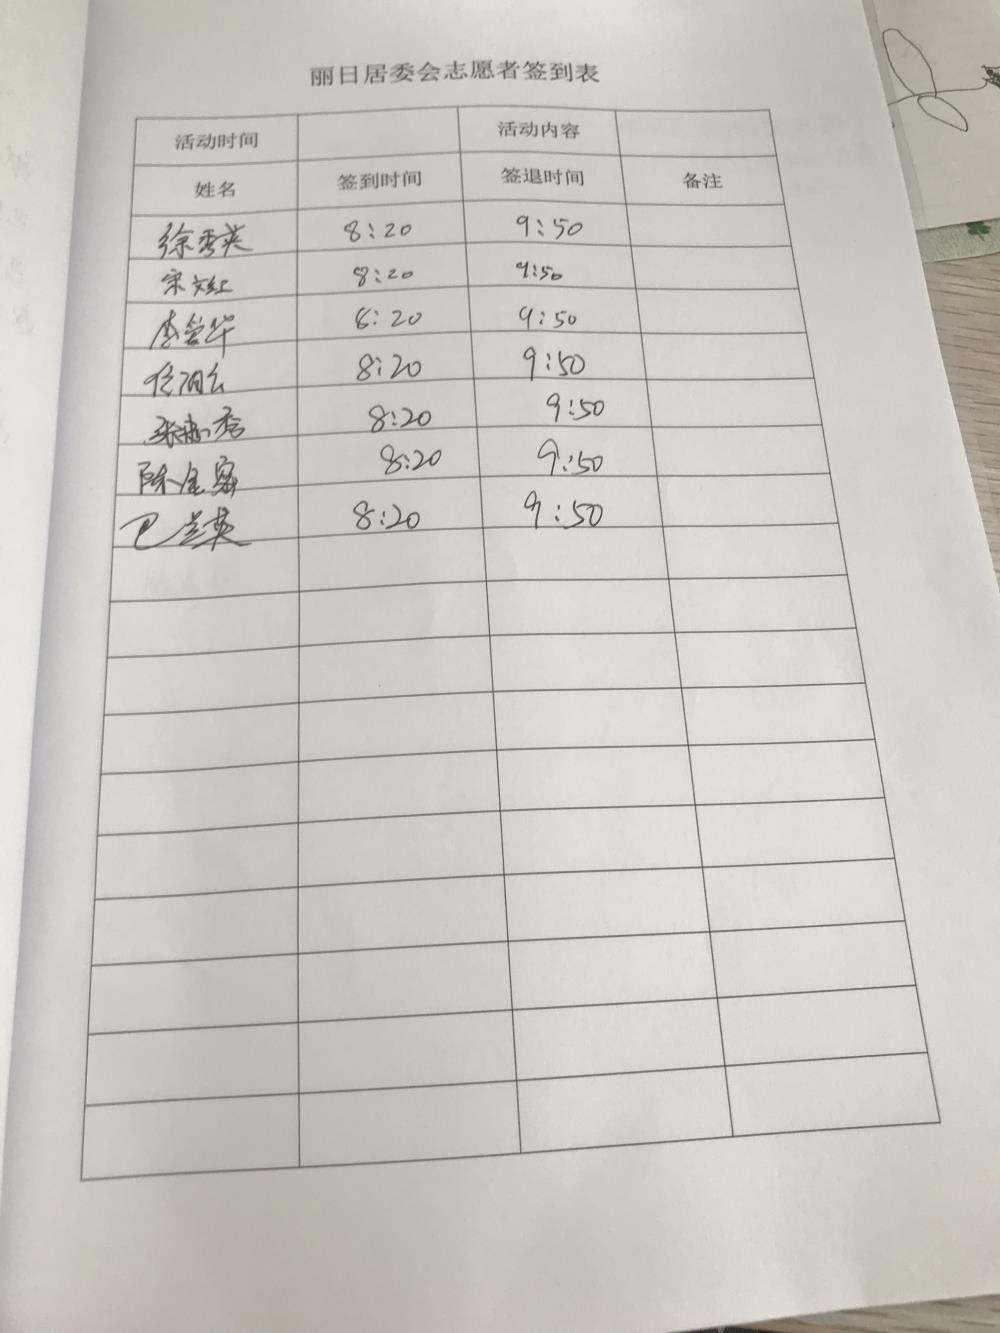 丽日居委会志愿者签到表
活动时间 活动内容
姓名 签到时间 签退时间 备注
徐秀英 8:20 9:50
宋文红 8:20 9:50
李莹华 8:20 9:50
8:20 9:50
张 秀 8:20 9:50
陈金 8:20 9:50
巴兰英 8:20 9:50